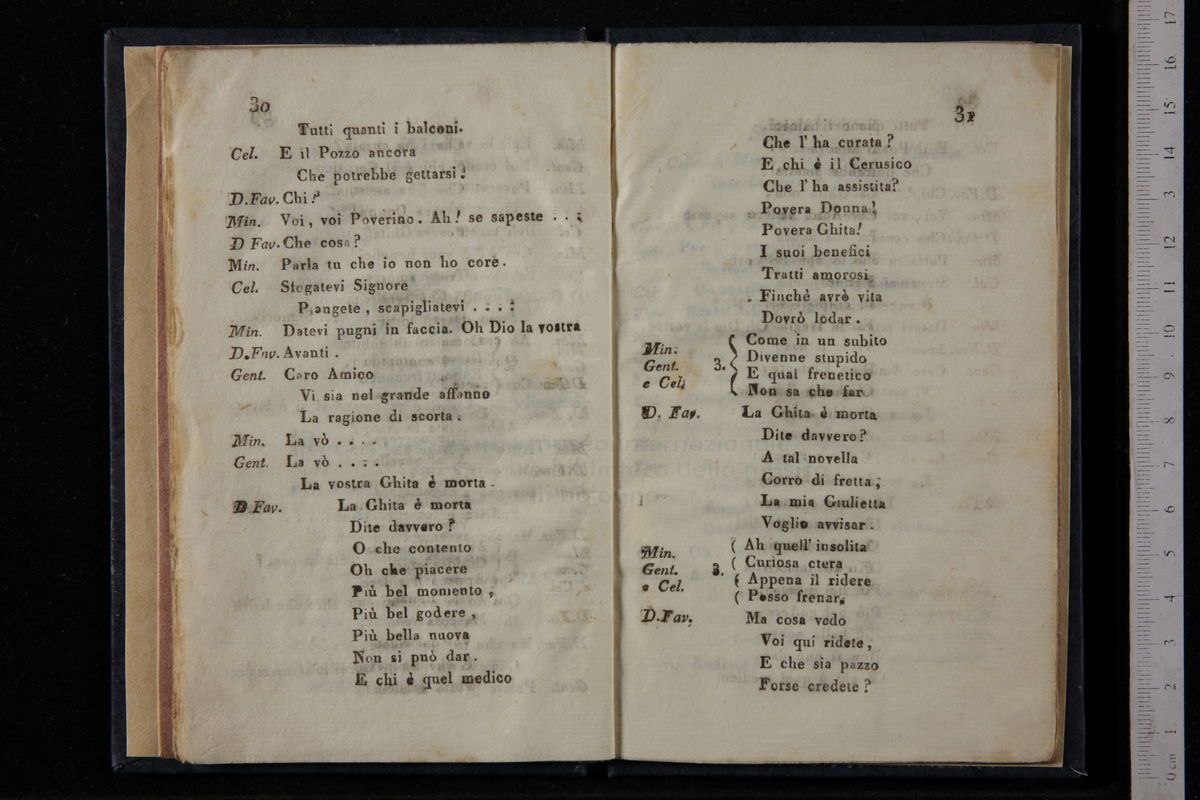 30
Tutti quanti i balconi.
Cel. E il Pozzo ancora
Che potrebbe gettarsi!
D. Fav. Chi?
Min. Voi, voi Poverino. Ah! se sapeste . . .
D Fav. Che cosa?
Min. Parla tu che io non ho core.
Cel. Sfogatevi Signore
Piangete, scapigliatevi . . . .
Min. Datevi pugni in faccia. Oh Dio la vostra
D. Fav. Avanti.
Gent. Caro Amico
Vi sia nel grande affanno
La ragione di scorta.
Min. La vò . . . .
Gent. La vò . . . .
La vostra Ghita è morta.
D. Fav. La Ghita è morta
Dite davvero?
O che contento
Oh che piacere
Più bel momento,
Più bel godere,
Più bella nuova
Non si può dar.
E chi è quel medico
31
Che l'ha curata?
E chi è il Cerusico
Che l'ha assistita?
Povera Donna!
Povera Ghita!
I suoi benefici
Tratti amorosi
Finchè avrò vita
Dovrò lodar.
Min. Gent. e Cel. 3. Come in un subito
Divenne stupido
E qual frenetico
Non sa che far
D. Fav. La Ghita è morta
Dite davvero?
A tal novella
Corro di fretta;
La mia Giulietta
Voglio avvisar.
Min. Gent. e Cel. 3. ( Ah quell' insolita
( Curiosa ctera
( Appena il ridere
( Posso frenar.
D. Fav. Ma cosa vedo
Voi qui ridete,
E che sia pazzo
Forse credete?
0 cm 1 2 3 4 5 6 7 8 9 10 11 12 13 14 15 16 17